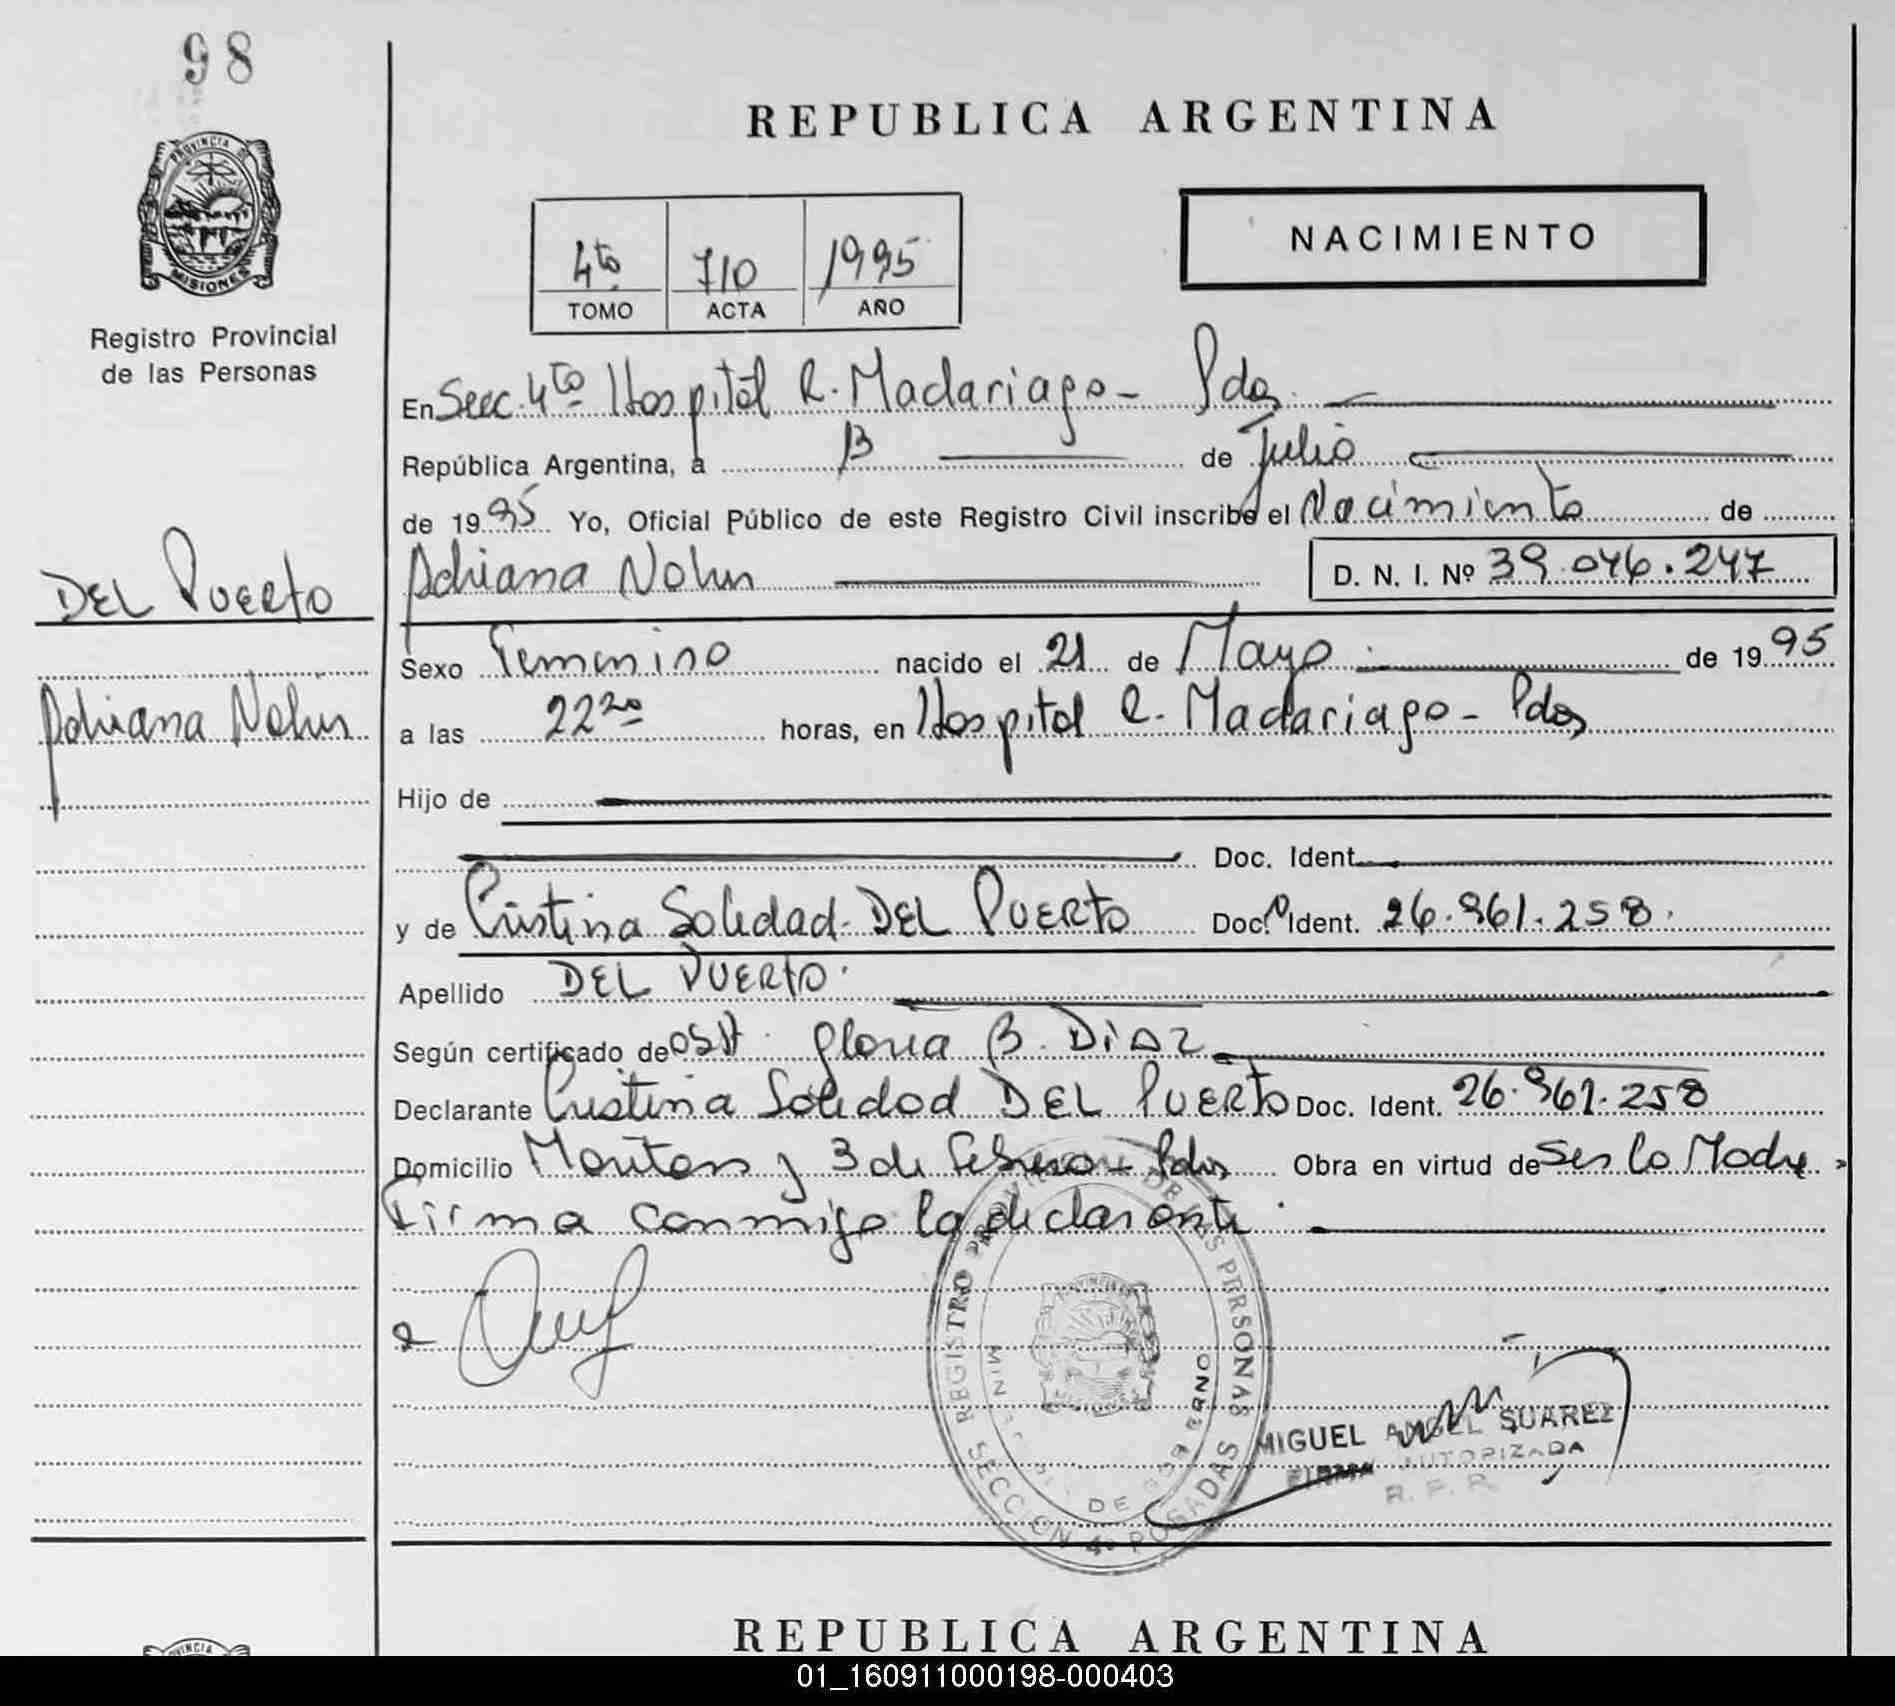 98
REPUBLICA ARGENTINA
PROVINCIA DE MISIONES
Registro Provincial
de las Personas
4to 710 1995
TOMO ACTA AÑO
NACIMIENTO
En Secc. 4to Hospital R. Madariaga - Pdas.
República Argentina, a 13 de Julio
de 1995 Yo, Oficial Público de este Registro Civil inscribo el Nacimiento de
DEL PUERTO
Adriana Nohir
Adriana D. N. I. Nº 39.046.247
Sexo Femenino nacido el 21 de Mayo de 1995
a las 22 horas, en Hospital R. Madariaga - Pdas
Hijo de
Doc. Ident.
y de Cristina Soledad DEL PUERTO Doc. Ident. 26.961.258.
Apellido DEL PUERTO.
Según certificado de Obst. Gloria B. Diaz
Declarante Cristina Soledad DEL PUERTO Doc. Ident. 26.961.258
Domicilio y 3 de Febrero - Pdas Obra en virtud de Ser la Madre
Firma conmigo la declarante.
REGISTRO PROVINCIAL DE LAS PERSONAS
DE GOBIERNO
SECCION 4ª POSADAS
MIGUEL ANGEL SUAREZ
FIRMA AUTORIZADA
R. P. P.
REPUBLICA ARGENTINA
01_160911000198-000403